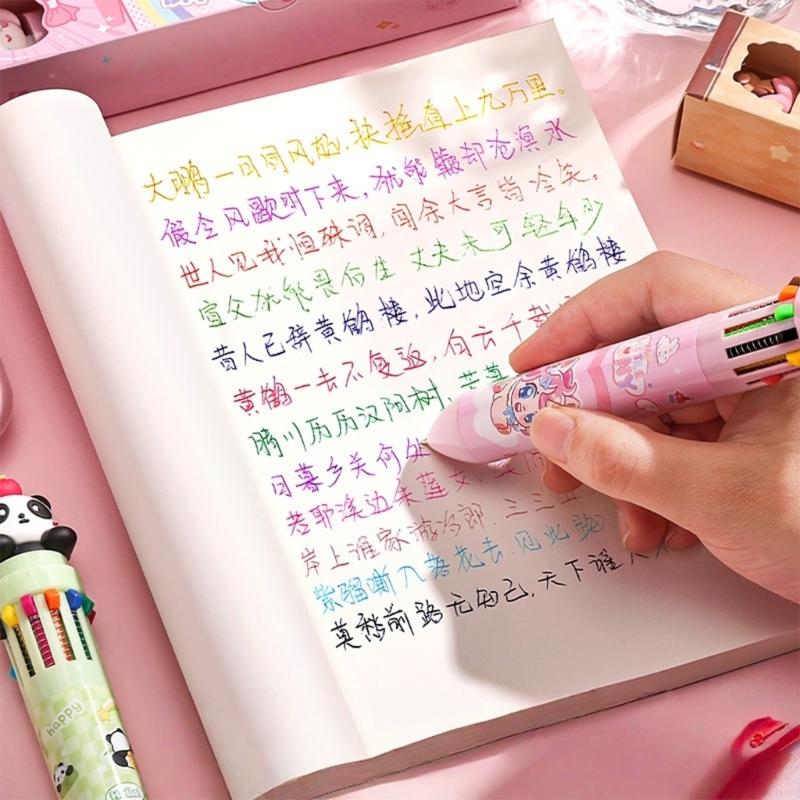 大鹏一日同风起,扶摇直上九万里。
假令风歇时下来,犹能簸却沧溟水
世人见我恒殊调,闻余大言皆冷笑。
宣父犹能畏后生 丈夫未可轻年少
昔人已辞黄鹤楼,此地空余黄鹤楼
黄鹤一去不复返,白云千载
晴川历历汉阳树,芳草
日暮乡关何处
若耶溪边采莲女,
岸上谁家游冶郎.三三五
紫骝嘶入落花去 见此踟
莫愁前路无知己,天下谁人
happy
Hello